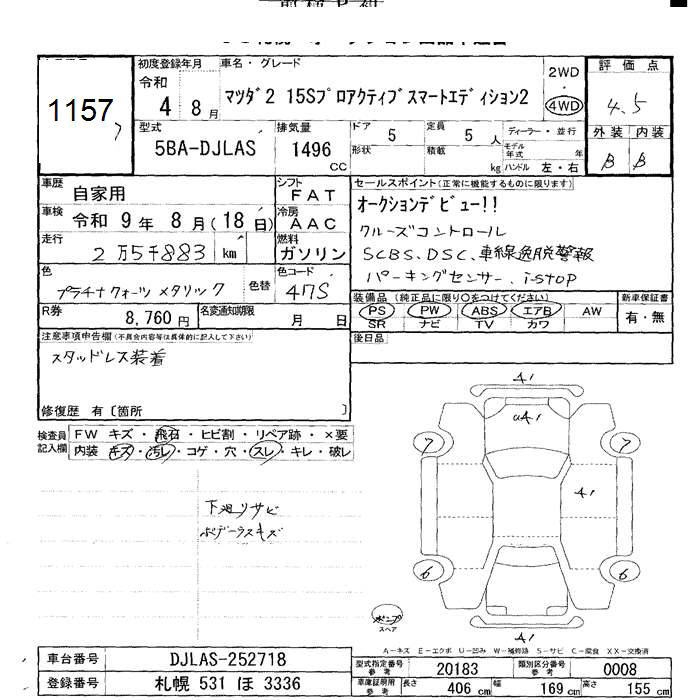 初度登録年月 車名・グレード 2WD 評価点
令和 4年 8月 マツダ2 15Sプロアクティブスマートエディション2 ・ 4WD 4.5
1157
外装 内装
B B
型式 排気量 ドア 5 定員 5人 ディーラー・並行
5BA-DJLAS 1496 CC 形状 積載 kg モデル年式 年
ハンドル 左・右
車歴 自家用 シフト FAT セールスポイント(正常に機能するものに限ります)
車検 令和 9年 8月(18日) 冷房 AAC オークションデビュー!!
走行 2万5千883 km 燃料 ガソリン クルーズコントロール
SCBS、DSC、車線逸脱警報
色 プラチナクォーツメタリック 色替 色コード 47S パーキングセンサー、i-STOP
R券 8,760円 名変通知期限 月 日
装備品(純正品に限り○をつけてください) 新車保証書
PS・PW・ABS・エアB・AW 有・無
SR ナビ TV カワ
注意事項申告欄(不具合内容等は具体的に記入して下さい) 後日品
スタッドレス装着
修復歴 有〔箇所 〕
検査員記入欄 FW キズ・飛石・ヒビ割・リペア跡・×要
内装 キズ・汚レ・コゲ・穴・スレ・キレ・破レ
下廻りサビ
ボデーラスキズ
A1
UA1
7 7
A1
6 6
スペア
A1
A-キズ E-エクボ U-凹み W-補修跡 S-サビ C-腐食 XX-交換済
車台番号 DJLAS-252718 型式指定番号 参考 20183 類別区分番号 参考 0008
登録番号 札幌 531 ほ 3336 車庫証明用 参考 長さ 406 cm 幅 169 cm 高さ 155 cm